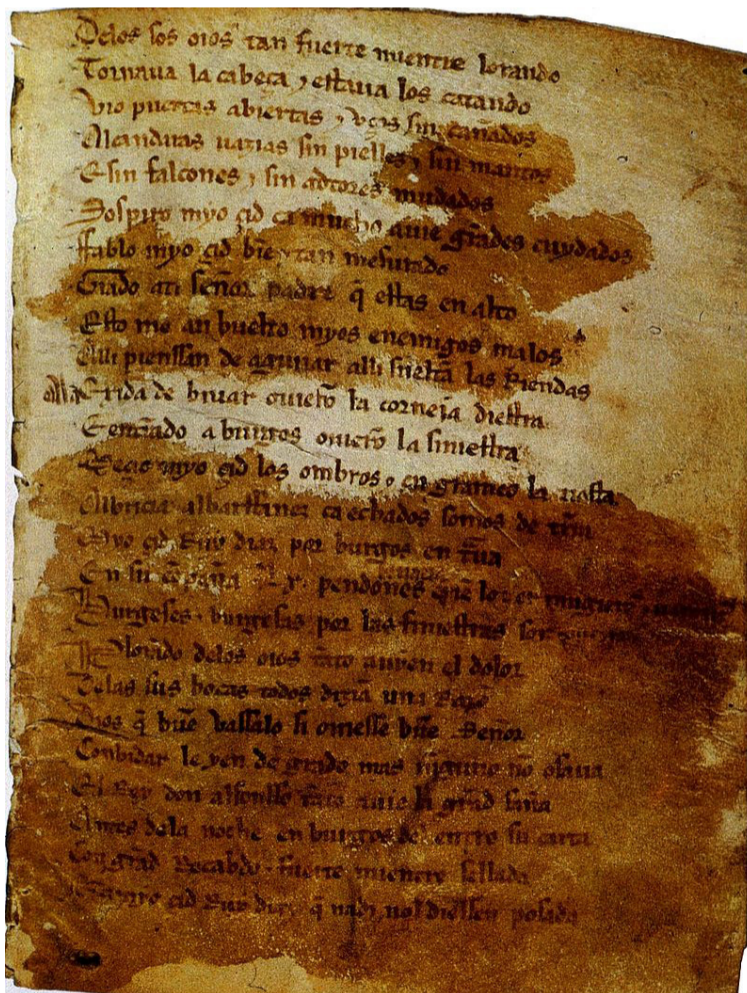 Delos sos oios tan fuerte mientre lorando
Tornaua la cabeça ⁊ estaua los catando
Vio puertas abiertas ⁊ vços sin cañados
Alcandaras uazias sin pielles ⁊ sin mantos
E sin falcones ⁊ sin adtores mudados
Sospiro myo çid ca mucho auie grãdes cuydados
Ffablo myo çid biẽ ⁊ tan mesurado
Grado ati señor padre q̃ estas en alto
Esto me an buelto myos enemigos malos
Alli pienssan de aguiiar alli sueltã las Riendas
Ala Exida de biuar ouierõ la corneia diestra
E entrãdo a burgos ouierõ la siniestra
Meçio myo çid los ombros ⁊ en grameo la tiesta
Albricia albarffanez ca echados somos de tr̃ra
Myo çid Ruy diaz por burgos en t̃ua
En su cõpaña Lx pendones
Burgeses ⁊ burgesas por las finiestras son
Plorãdo delos oios tãto auyen el dolor
Delas sus bocas todos dizìã una Razõ
Dios q̃ buẽ vassalo si ouiesse buẽ Señor
Conbidar le yen de grado mas ninguno nõ osaua
El Rey don alfonsso tãto auie la grãd saña
Antes dela noche en burgos del entro su carta
Con grãd Recabdo ⁊ fuerte mientre sellada
çid Ruy diaz q̃ nadi nol diessen posada